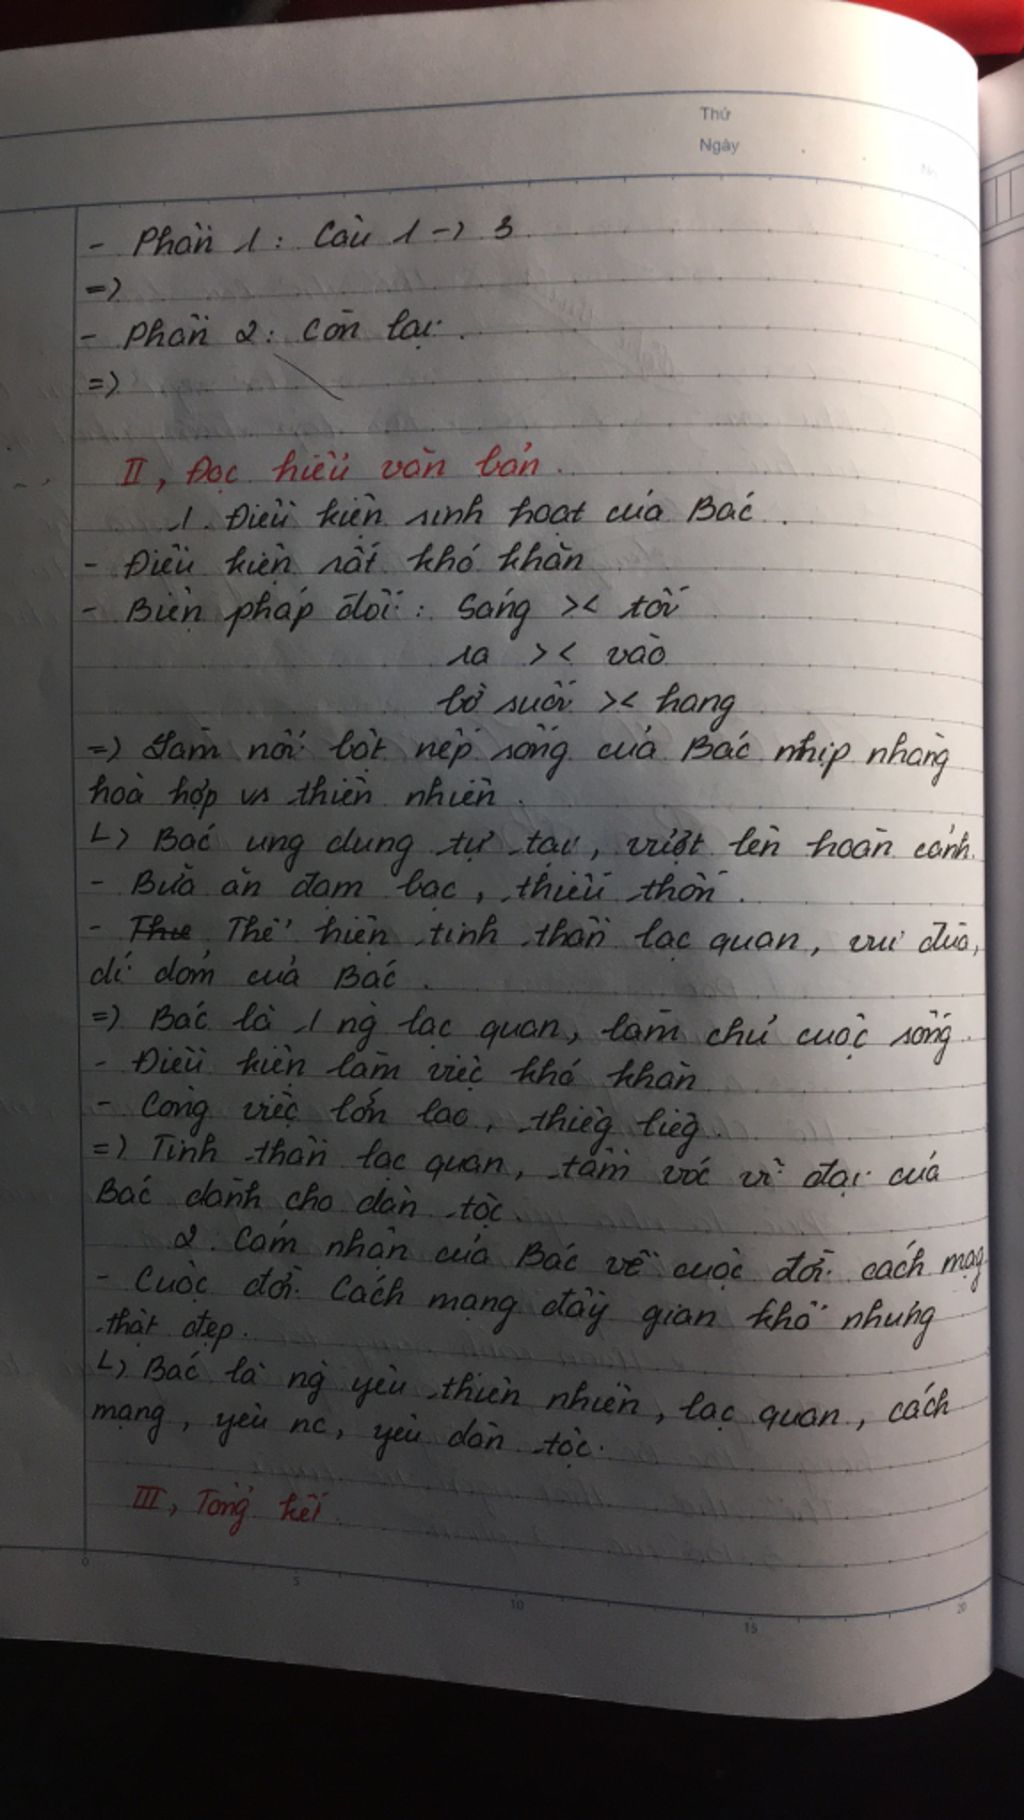 Thứ
Ngày
- Phần 1: Câu 1 -> 3
=>
- Phần 2: Còn lại.
=>
II, Đọc hiểu văn bản.
1. Điều kiện sinh hoạt của Bác.
- Điều kiện rất khó khăn
- Biện pháp đối: Sáng >< tối
ra >< vào
bờ suối >< hang
=> Làm nổi bật nếp sống của Bác nhịp nhàng
hoà hợp vs thiên nhiên.
L> Bác ung dung tự tại, vượt lên hoàn cảnh.
- Bữa ăn đạm bạc, thiếu thốn.
- Thue Thể hiện tinh thần lạc quan, vui đùa,
dí dỏm của Bác.
=> Bác là 1 ng lạc quan, làm chủ cuộc sống.
- Điều kiện làm việc khó khăn
- Công việc lớn lao, thiêg liêg.
=> Tinh thần lạc quan, tầm vóc vĩ đại của
Bác dành cho dân tộc.
2. Cảm nhận của Bác về cuộc đời cách mạg
- Cuộc đời Cách mạng đầy gian khổ nhưng
thật đẹp.
L> Bác là ng yêu thiên nhiên, lạc quan, cách
mạng, yêu nc, yêu dân tộc.
III, Tổng kết
0 5 10 15 20